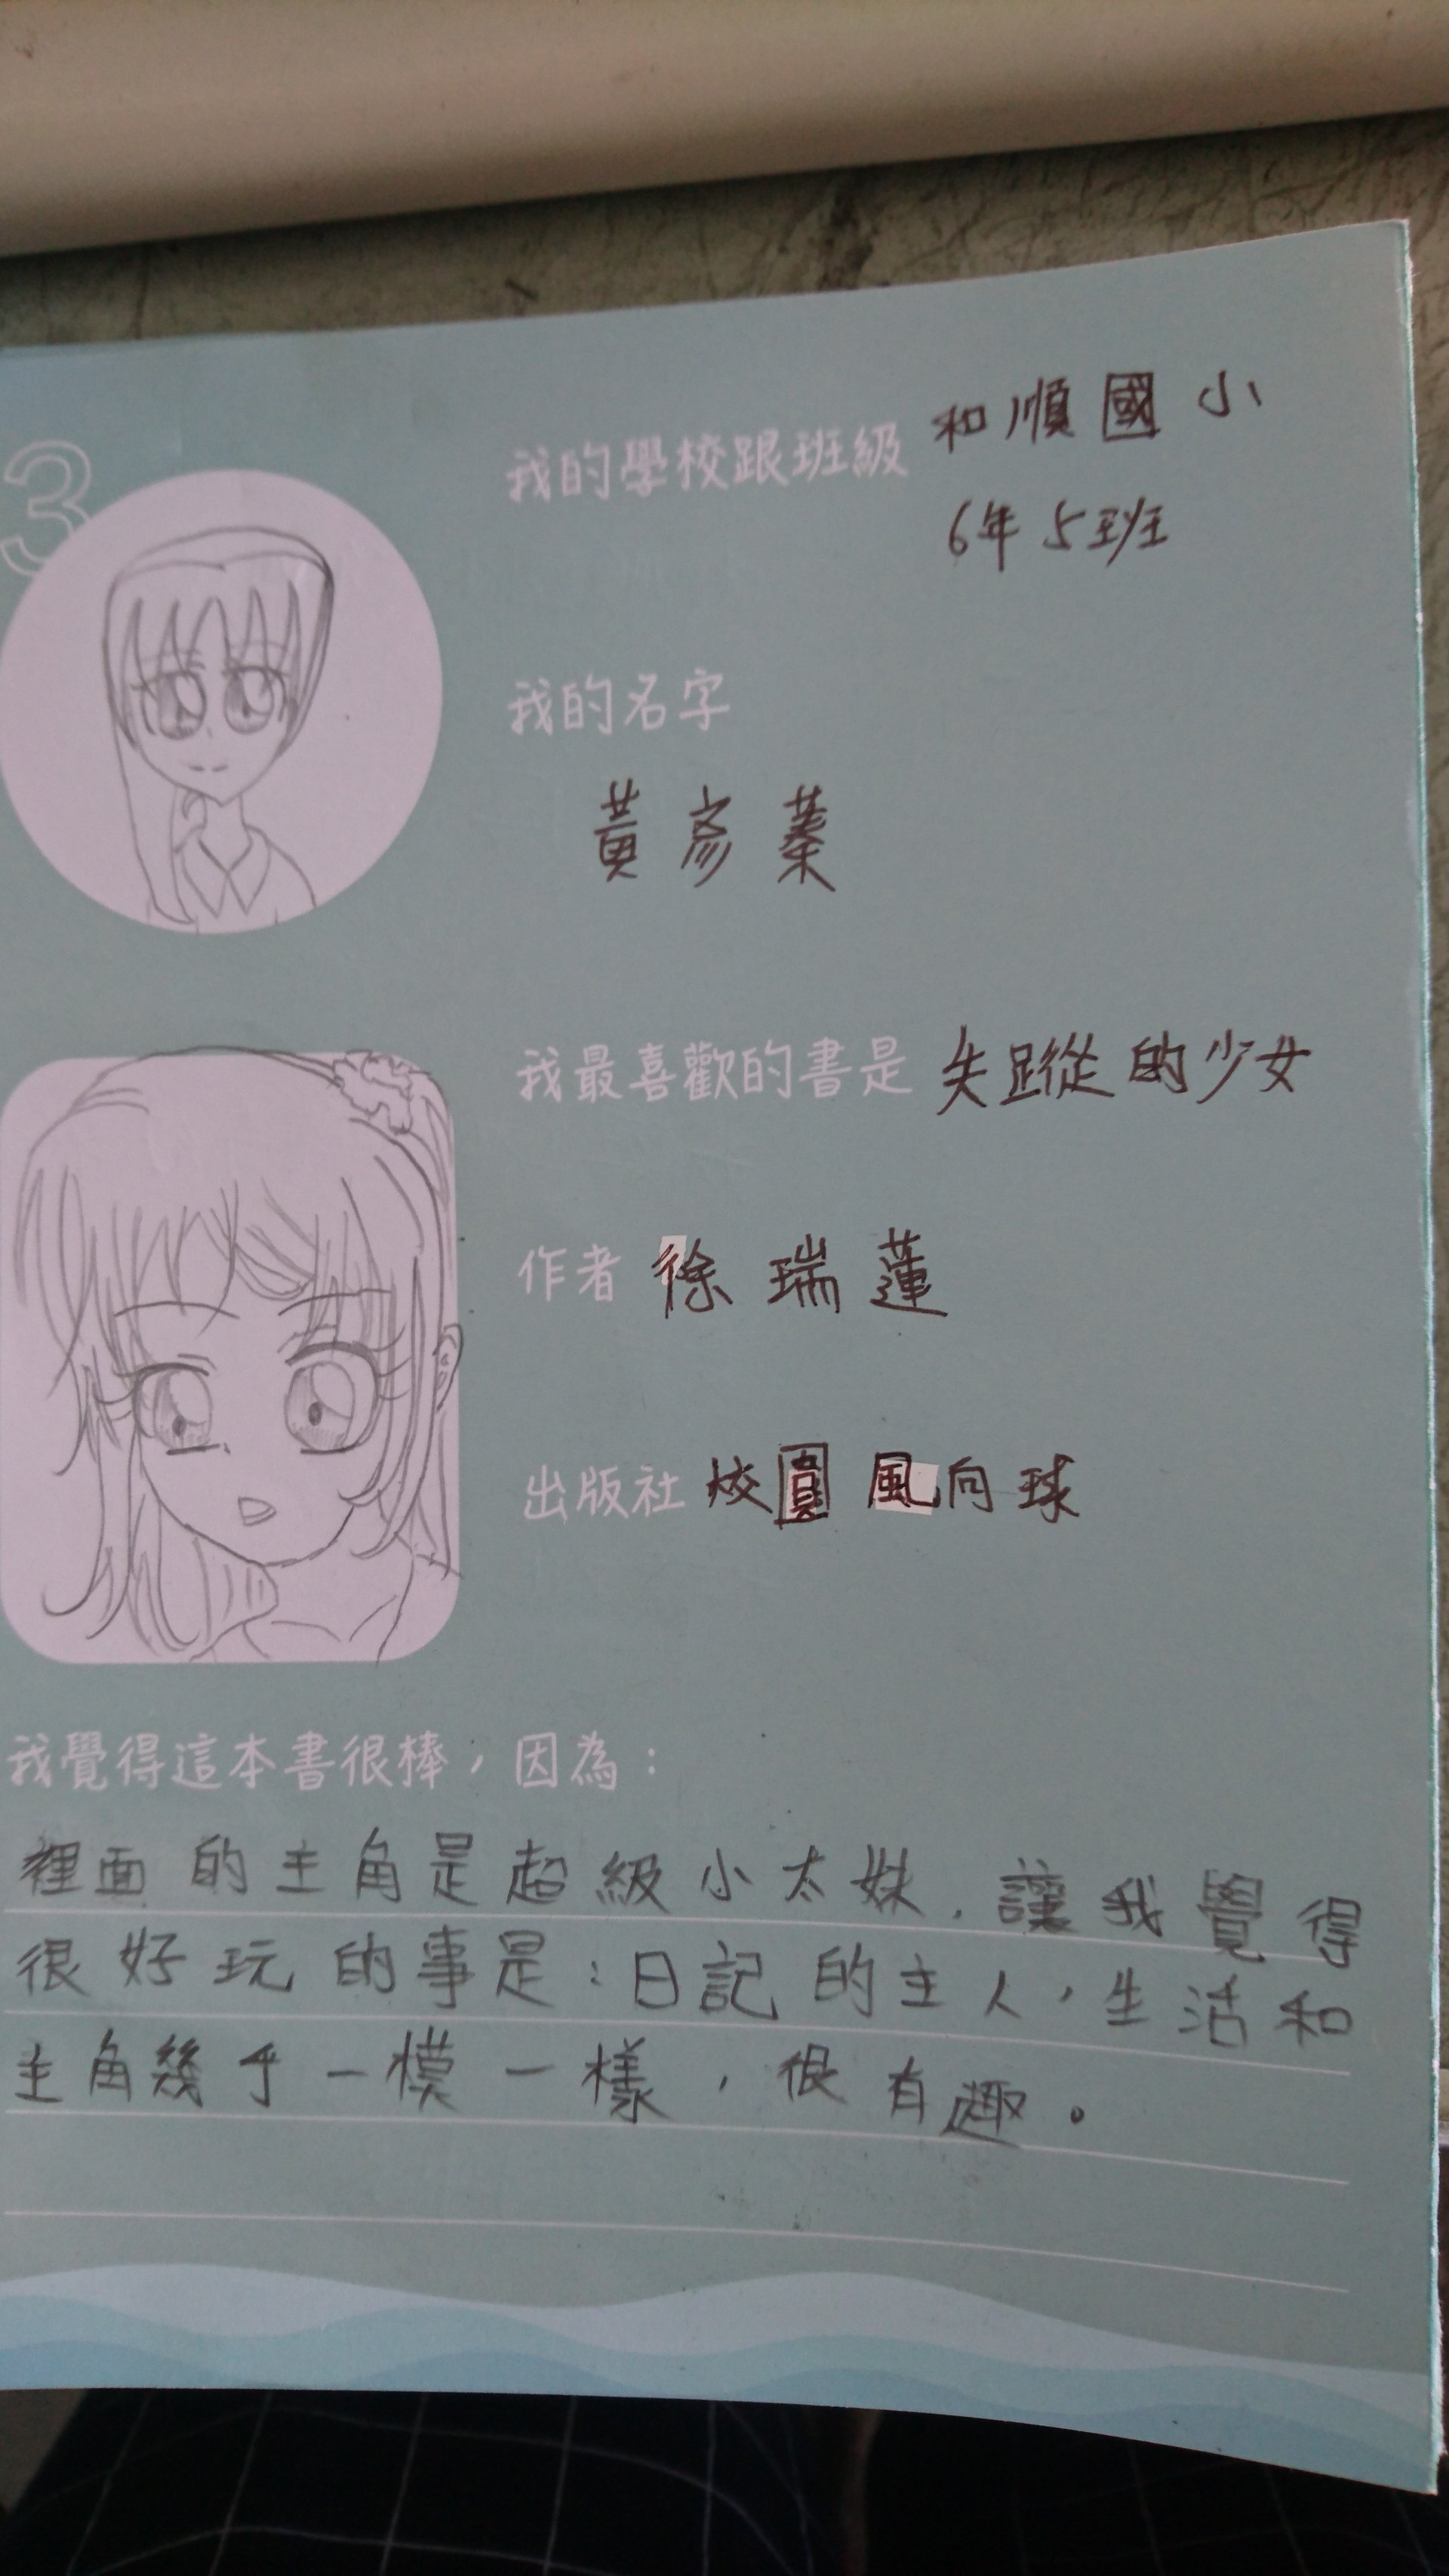 3
我的學校跟班級 和順國小
6年5班
我的名字
黃彥蓁
我最喜歡的書是 失蹤的少女
作者 徐瑞蓮
出版社 校園風向球
我覺得這本書很棒，因為：
裡面的主角是超級小太妹，讓我覺得
很好玩的事是：日記的主人，生活和
主角幾乎一模一樣，很有趣。